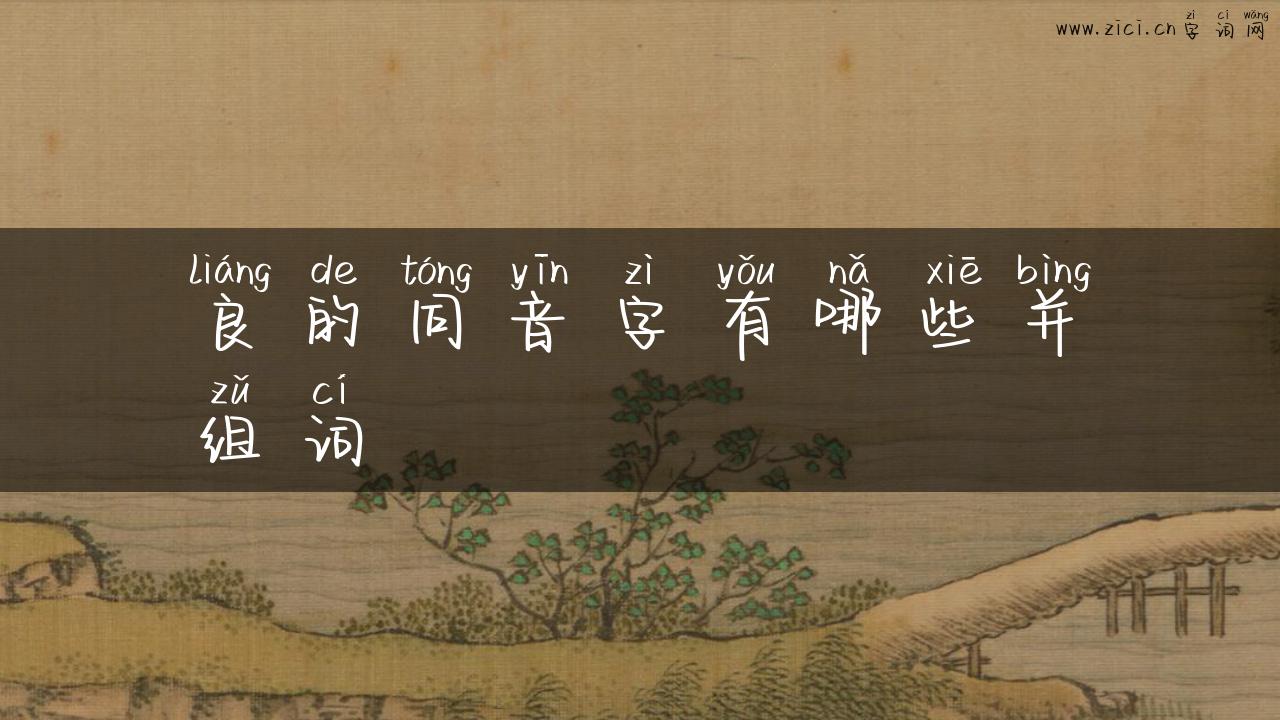 zì cí wǎng
www.zici.cn 字词网
liáng de tóng yīn zì yǒu nǎ xiē bìng
良的同音字有哪些并
zǔ cí
组词